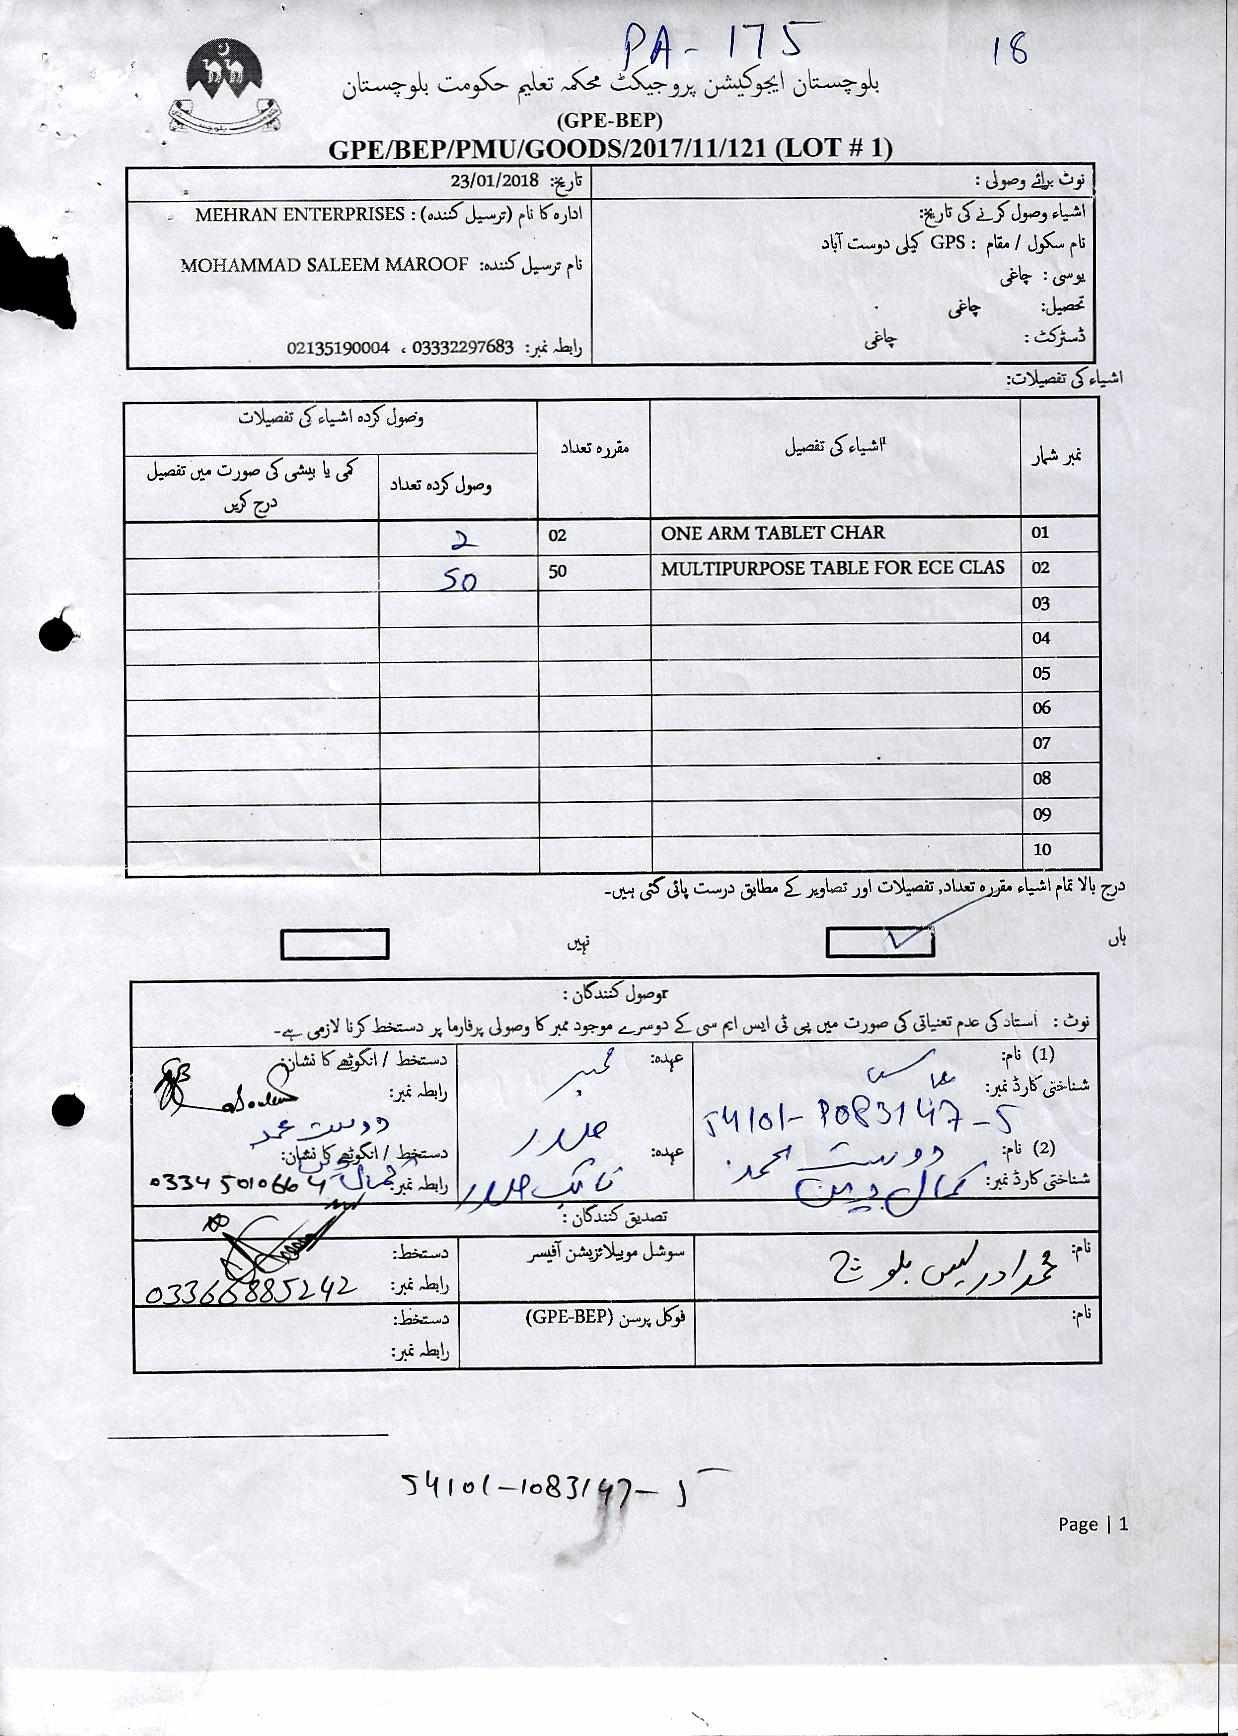 PA-175 18
بلوچستان ایجوکیشن پروجیکٹ محکمہ تعلیم حکومت بلوچستان
(GPE-BEP)
GPE/BEP/PMU/GOODS/2017/11/121 (LOT # 1)
نوٹ برائے وصولی :
تاریخ: 23/01/2018
اشیاء وصول کرنے کی تاریخ:
نام سکول / مقام : GPS کیلی دوست آباد
یوسی : چاغی
تحصیل: چاغی
ڈسٹرکٹ : چاغی
ادارہ کا نام (ترسیل کنندہ) : MEHRAN ENTERPRISES
نام ترسیل کنندہ: MOHAMMAD SALEEM MAROOF
رابطہ نمبر: 03332297683 ، 02135190004
اشیاء کی تفصیلات:
نمبر شمار اشیاء کی تفصیل مقررہ تعداد وصول کردہ اشیاء کی تفصیلات
وصول کردہ تعداد کمی یا بیشی کی صورت میں تفصیل درج کریں
01 ONE ARM TABLET CHAR 02 2
02 MULTIPURPOSE TABLE FOR ECE CLAS 50 50
03
04
05
06
07
08
09
10
درج بالا تمام اشیاء مقررہ تعداد, تفصیلات اور تصاویر کے مطابق درست پائی گئی ہیں۔
ہاں نہیں
وصول کنندگان :
نوٹ : استاد کی عدم تعنیاتی کی صورت میں پی ٹی ایس ایم سی کے دوسرے موجود ممبر کا وصولی پرفارما پر دستخط کرنا لازمی ہے۔
(1) نام: عہدہ: ممبر دستخط / انگوٹھے کا نشان:
شناختی کارڈ نمبر: رابطہ نمبر:
54101-1083147-5
(2) نام: دوست محمد عہدہ: صدر دستخط / انگوٹھے کا نشان: دوست محمد
شناختی کارڈ نمبر: کمال دین نائب صدر رابطہ نمبر: 03345010664
تصدیق کنندگان :
نام: محمد ادریس بلوچ سوشل موبیلائزیشن آفیسر دستخط:
رابطہ نمبر: 03366885242
نام: فوکل پرسن (GPE-BEP) دستخط:
رابطہ نمبر:
54101-1083147-5
Page | 1